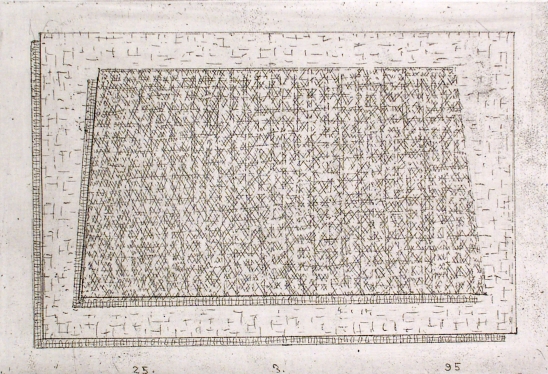 25. 3. 95